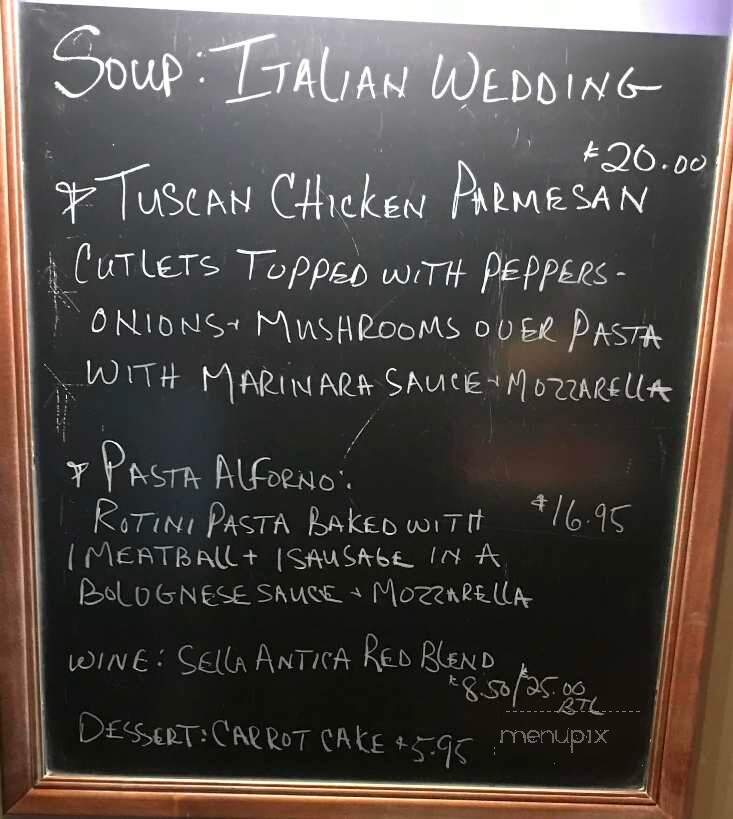 SOUP: ITALIAN WEDDING
$20.00
* TUSCAN CHICKEN PARMESAN
CUTLETS TOPPED WITH PEPPERS-
ONIONS + MUSHROOMS OVER PASTA
WITH MARINARA SAUCE + MOZZARELLA
* PASTA ALFORNO:
ROTINI PASTA BAKED WITH $16.95
1 MEATBALL + 1 SAUSAGE IN A
BOLOGNESE SAUCE + MOZZARELLA
WINE: SELLA ANTICA RED BLEND
$8.50/$25.00
BTL
DESSERT: CARROT CAKE $5.95
menupix